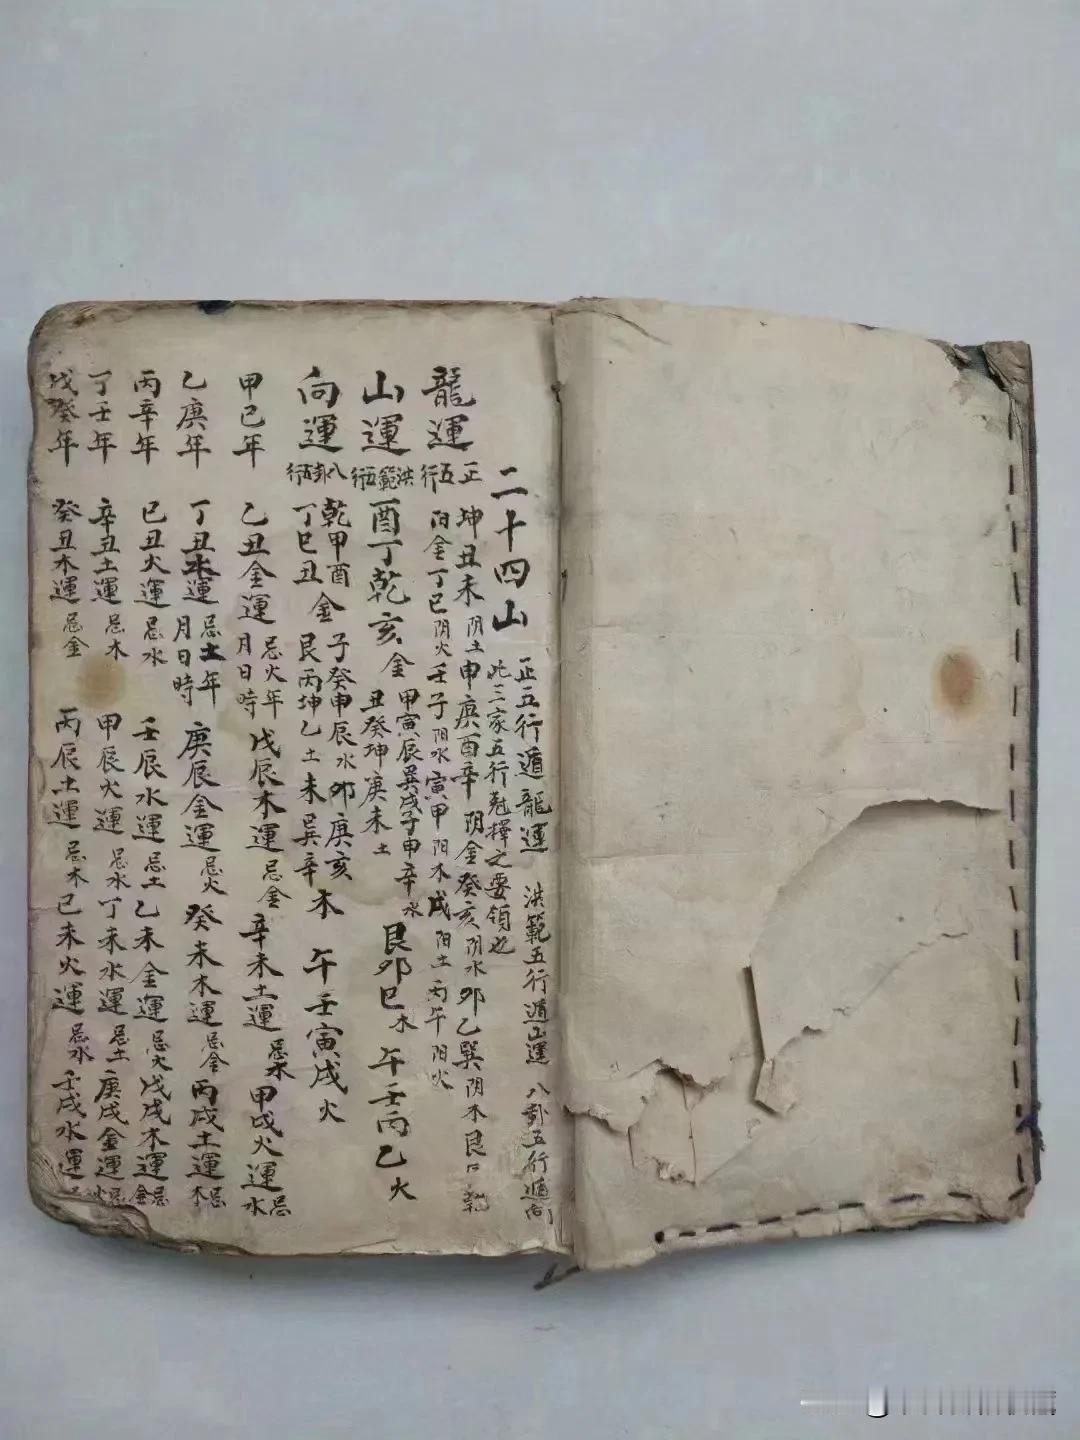 二十四山 正五行遁龍運 洪範五行遁山運 八卦五行遁向
此三家五行尅擇之要領也
龍運 正五行 坤丑未阴土申庚酉辛阴金癸亥阴水卯乙巽阴木艮 乾
阳金丁巳阴火壬子阳水寅甲阳木戌阳土丙午阳火
山運 洪範五行 酉丁乾亥金 甲寅辰巽戌子申辛水 艮卯巳木 午壬丙乙火
丑癸坤庚未土
向運 八卦五行 乾甲酉 子癸申辰水卯庚亥
丁巳丑金 艮丙坤乙土未巽辛木 午壬寅戌火
甲己年 乙丑金運忌火年月日時 戊辰木運忌金 辛未土運忌木 甲戌火運忌水
乙庚年 丁丑水運忌土年月日時 庚辰金運忌火 癸未木運忌金 丙戌土運忌木
丙辛年 己丑火運忌水 壬辰水運忌土 乙未金運忌火 戊戌木運忌金
丁壬年 辛丑土運忌木 甲辰火運忌水 丁未水運忌土 庚戌金運忌火
戊癸年 癸丑木運忌金 丙辰土運忌木 己未火運忌水 壬戌水運忌